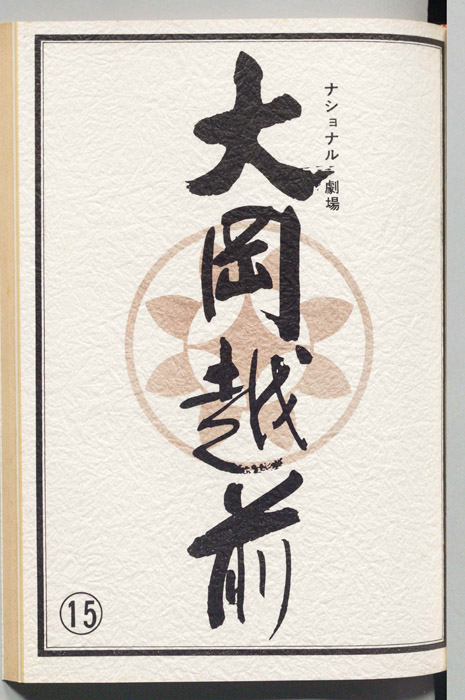 ナショナル劇場
大岡越前
⑮